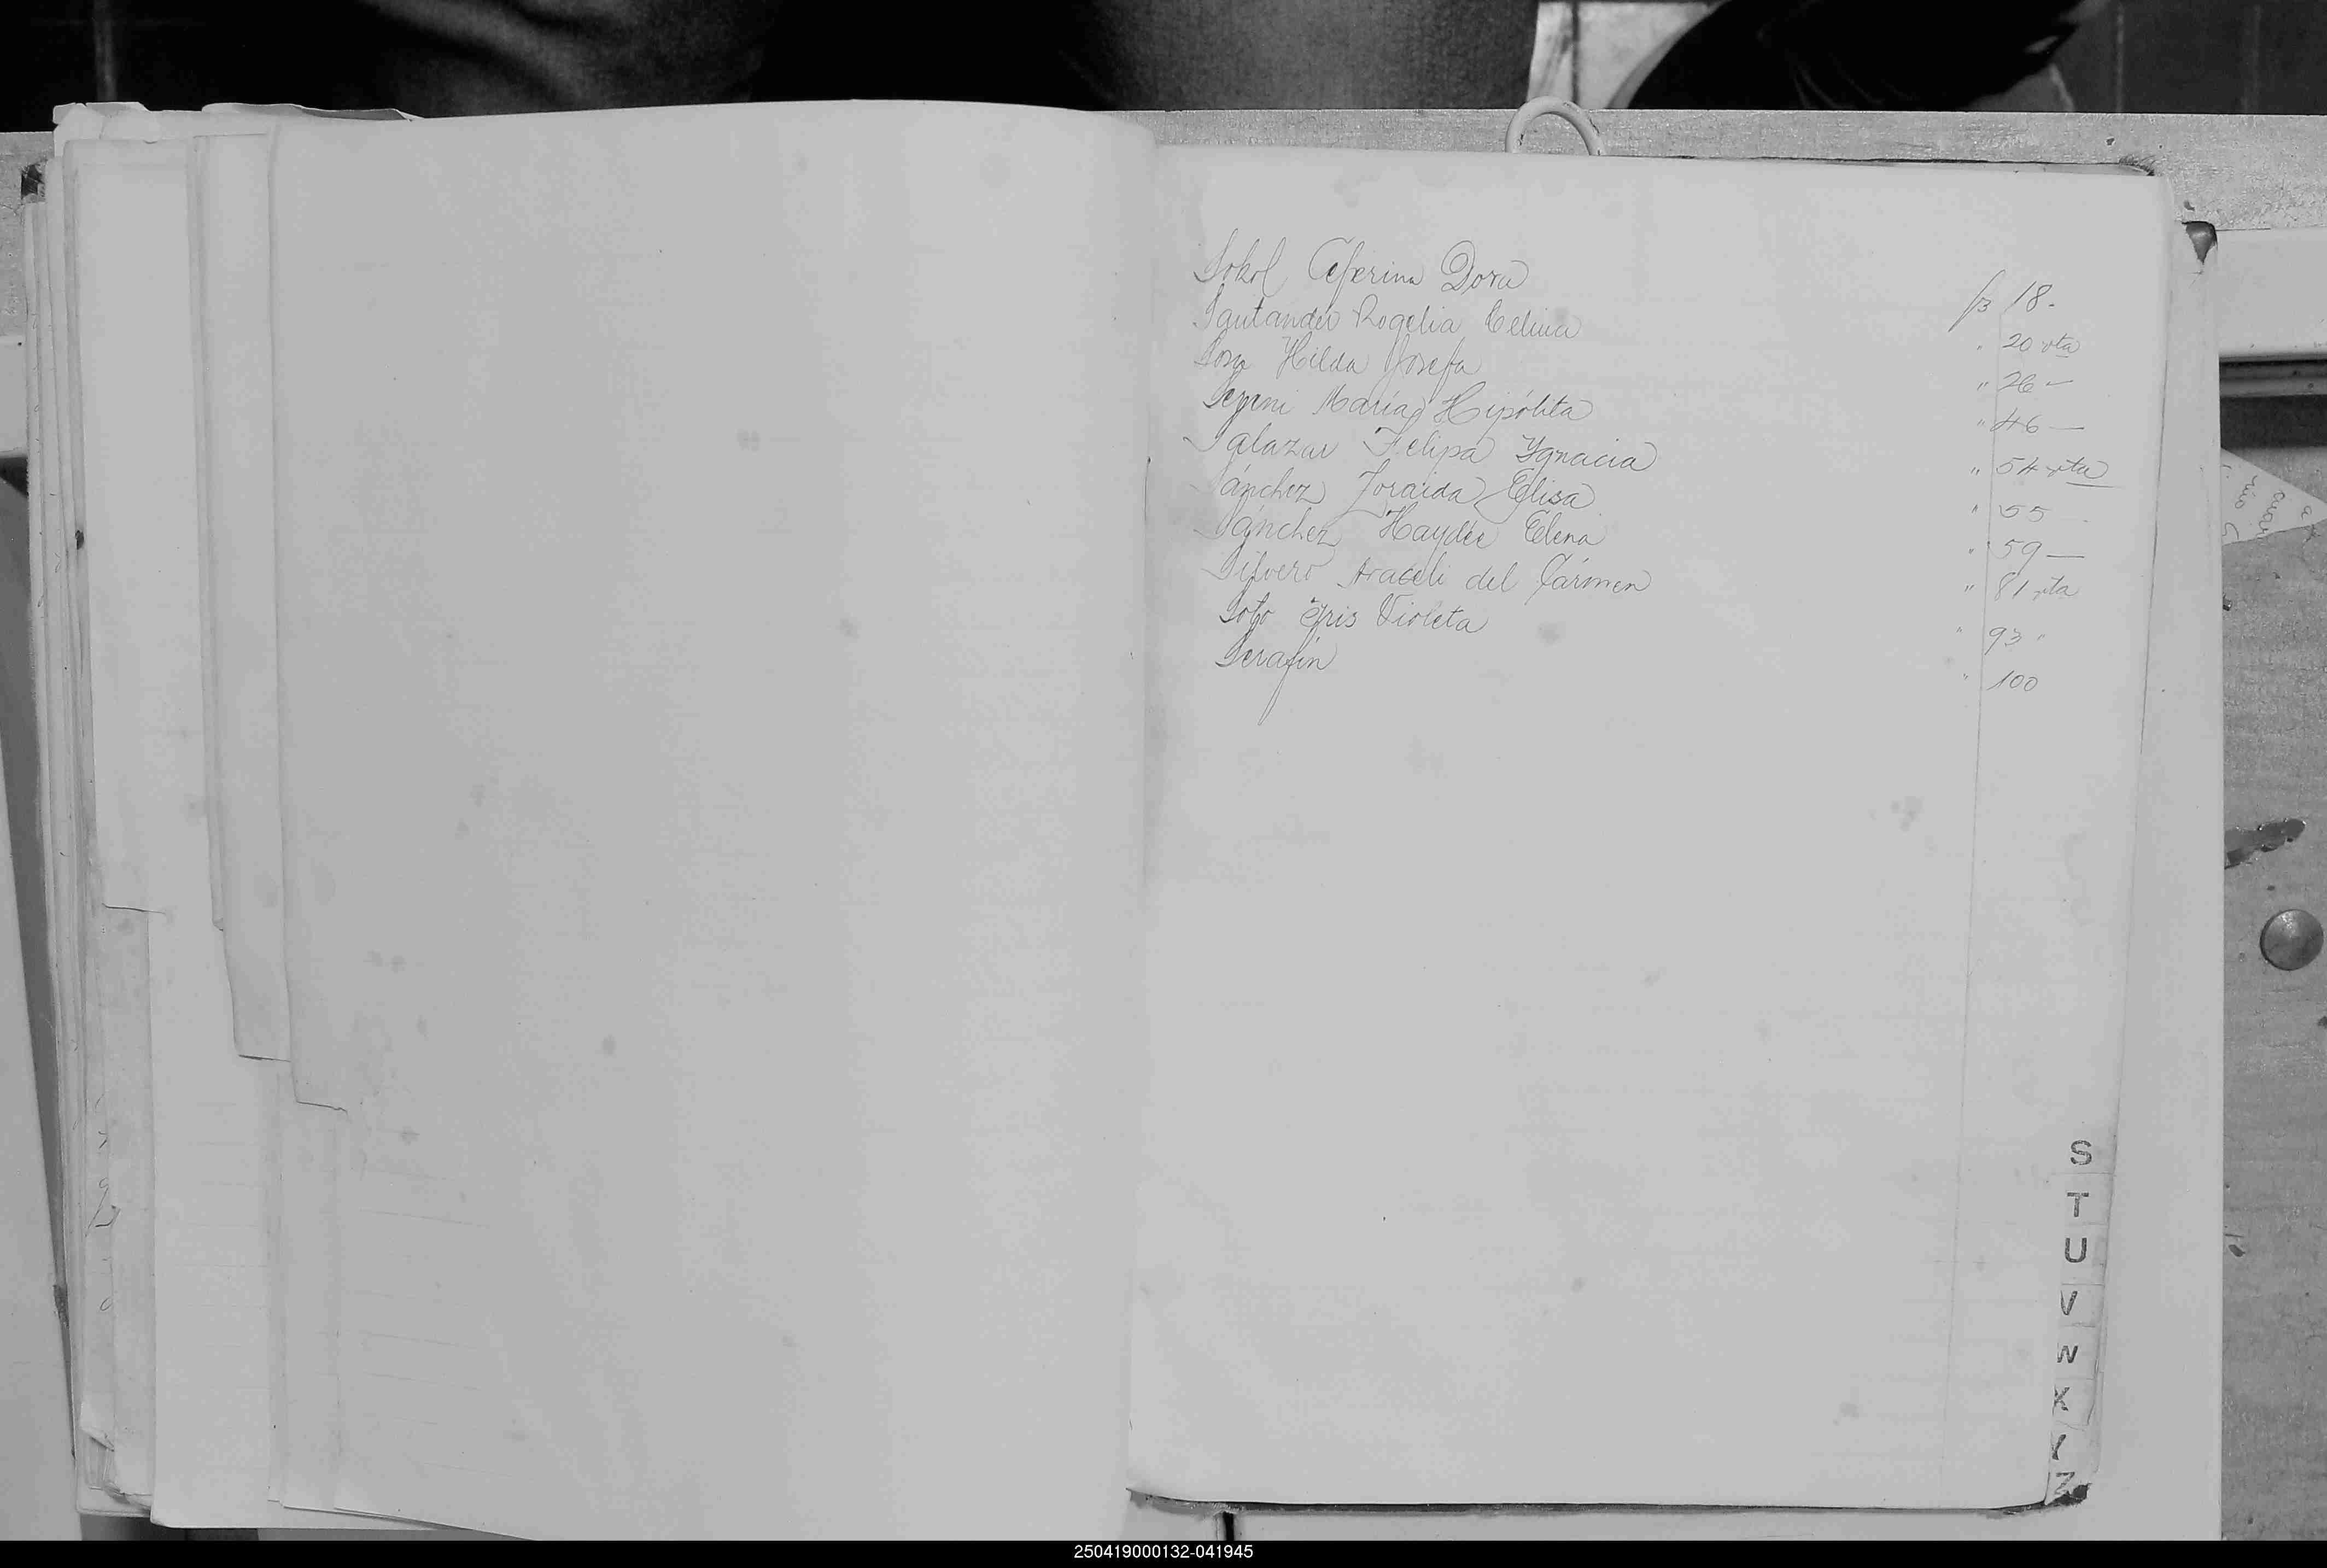 Sokol Ceferina Dora fs 18.
Santander Rogelia Celina " 20 vta
Sosa Hilda Josefa " 26 —
María Hipólita " 46 —
Salazar Felipa Ygnacia " 54 vta
Sánchez Zoraida Elisa " 55 —
Sánchez Haydée Elena " 59 —
Silvero Araceli del Cármen " 81 vta
Soto Iris Violeta " 93 "
Serafin " 100
S
T
U
V
W
X
Y
Z
250419000132-041945